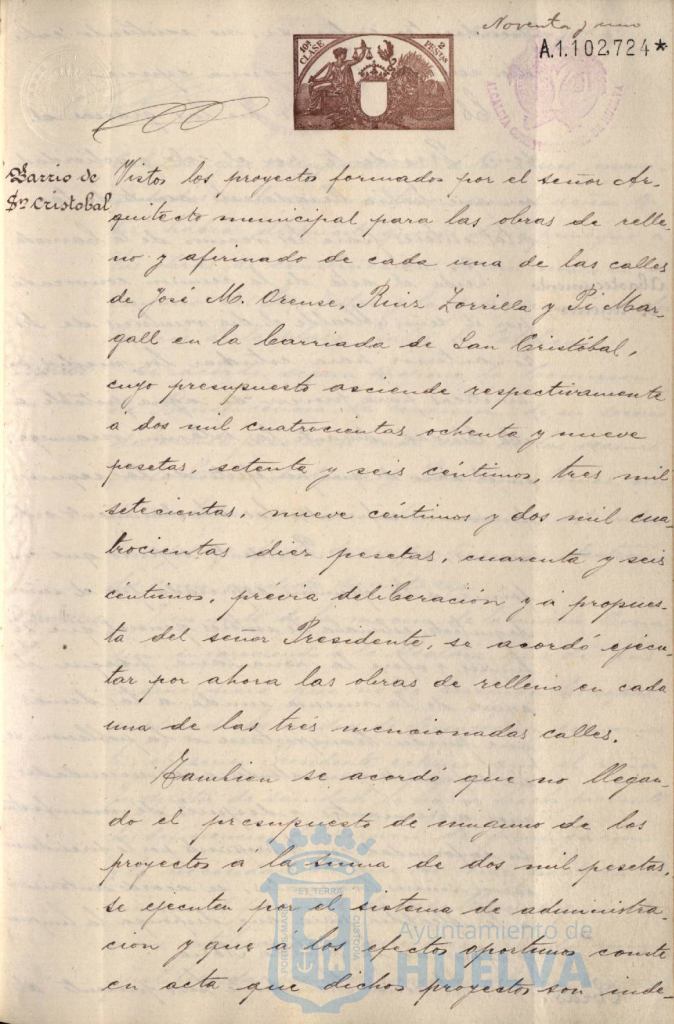 Noventa y uno
A.1.102.724*
10ª CLASE
2 PESETAS
Barrio de
Sn Cristobal
Vistos los proyectos formados por el señor Ar-
quitecto municipal para las obras de relle-
no y afirmado de cada una de las calles
de José M. Orense, Ruiz Zorrilla y Pi Mar-
gall en la barriada de San Cristóbal,
cuyo presupuesto asciende respectivamente
á dos mil cuatrocientas ochenta y nueve
pesetas, setenta y seis céntimos, tres mil
setecientas, nueve céntimos y dos mil cua-
trocientas diez pesetas, cuarenta y seis
céntimos, prévia deliberación y á propues-
ta del señor Presidente, se acordó ejecu-
tar por ahora las obras de relleno en cada
una de las tres mencionadas calles.
Tambien se acordó que no llegan-
do el presupuesto de ninguno de los
proyectos á la suma de dos mil pesetas,
se ejecuten por el sistema de administra-
cion y que á los efectos oportunos conste
en acta que dichos proyectos son inde-
Ayuntamiento de
HUELVA